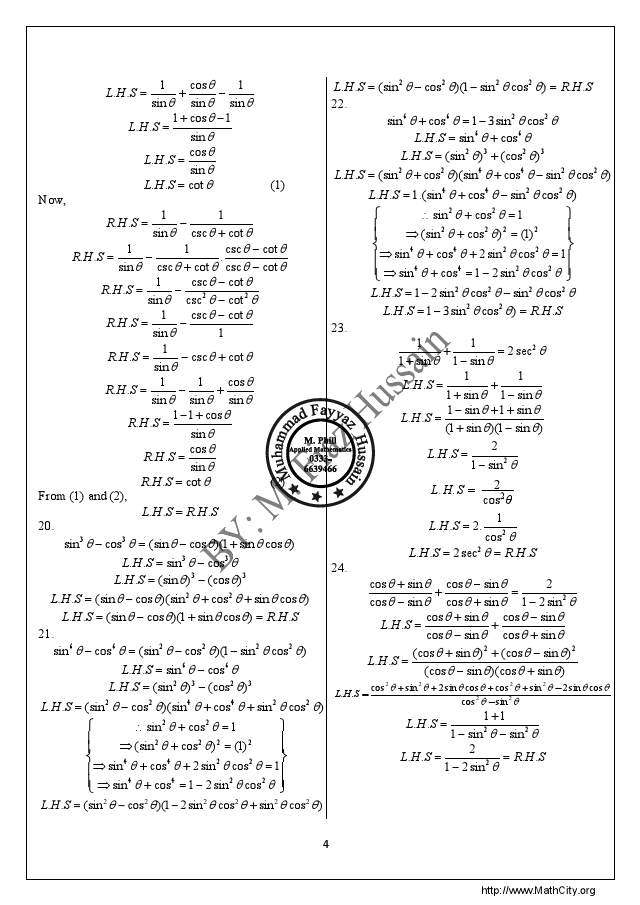 L.H.S = 1/sinθ + cosθ/sinθ − 1/sinθ
L.H.S = (1+cosθ−1)/sinθ
L.H.S = cosθ/sinθ
L.H.S = cotθ (1)
Now,
R.H.S = 1/sinθ − 1/(cscθ+cotθ)
R.H.S = 1/sinθ − 1/(cscθ+cotθ) . (cscθ−cotθ)/(cscθ−cotθ)
R.H.S = 1/sinθ − (cscθ−cotθ)/(csc²θ−cot²θ)
R.H.S = 1/sinθ − (cscθ−cotθ)/1
R.H.S = 1/sinθ − cscθ+cotθ
R.H.S = 1/sinθ − 1/sinθ + cosθ/sinθ
R.H.S = (1−1+cosθ)/sinθ
R.H.S = cosθ/sinθ
R.H.S = cotθ
From (1) and (2),
L.H.S = R.H.S
20.
sin³θ−cos³θ = (sinθ−cosθ)(1+sinθcosθ)
L.H.S = sin³θ−cos³θ
L.H.S = (sinθ)³−(cosθ)³
L.H.S = (sinθ−cosθ)(sin²θ+cos²θ+sinθcosθ)
L.H.S = (sinθ−cosθ)(1+sinθcosθ) = R.H.S
21.
sin⁶θ−cos⁶θ = (sin²θ−cos²θ)(1−sin²θcos²θ)
L.H.S = sin⁶θ−cos⁶θ
L.H.S = (sin²θ)³−(cos²θ)³
L.H.S = (sin²θ−cos²θ)(sin⁴θ+cos⁴θ+sin²θcos²θ)
∴ sin²θ+cos²θ=1
⇒(sin²θ+cos²θ)²=(1)²
⇒sin⁴θ+cos⁴θ+2sin²θcos²θ=1
⇒sin⁴θ+cos⁴=1−2sin²θcos²θ
L.H.S = (sin²θ−cos²θ)(1−2sin²θcos²θ+sin²θcos²θ)
L.H.S = (sin²θ−cos²θ)(1−sin²θcos²θ) = R.H.S
22.
sin⁶θ+cos⁶θ = 1−3sin²θcos²θ
L.H.S = sin⁶θ+cos⁶θ
L.H.S = (sin²θ)³+(cos²θ)³
L.H.S = (sin²θ+cos²θ)(sin⁴θ+cos⁴θ−sin²θcos²θ)
L.H.S = 1.(sin⁴θ+cos⁴θ−sin²θcos²θ)
∴ sin²θ+cos²θ=1
⇒(sin²θ+cos²θ)²=(1)²
⇒sin⁴θ+cos⁴θ+2sin²θcos²θ=1
⇒sin⁴θ+cos⁴=1−2sin²θcos²θ
L.H.S = 1−2sin²θcos²θ−sin²θcos²θ
L.H.S = 1−3sin²θcos²θ) = R.H.S
23.
1/(1+sinθ) + 1/(1−sinθ) = 2sec²θ
L.H.S = 1/(1+sinθ) + 1/(1−sinθ)
L.H.S = (1−sinθ+1+sinθ)/((1+sinθ)(1−sinθ))
L.H.S = 2/(1−sin²θ)
L.H.S = 2/cos²θ
L.H.S = 2.1/cos²θ
L.H.S = 2sec²θ = R.H.S
24.
(cosθ+sinθ)/(cosθ−sinθ) + (cosθ−sinθ)/(cosθ+sinθ) = 2/(1−2sin²θ)
L.H.S = (cosθ+sinθ)/(cosθ−sinθ) + (cosθ−sinθ)/(cosθ+sinθ)
L.H.S = ((cosθ+sinθ)²+(cosθ−sinθ)²)/((cosθ−sinθ)(cosθ+sinθ))
L.H.S = (cos²θ+sin²θ+2sinθcosθ+cos²θ+sin²θ−2sinθcosθ)/(cos²θ−sin²θ)
L.H.S = (1+1)/(1−sin²θ−sin²θ)
L.H.S = 2/(1−2sin²θ) = R.H.S
Muhammad Fayyaz Hussain
M. Phill
Applied Mathematics
6639466
BY: M. Hussain
4
http://www.MathCity.org